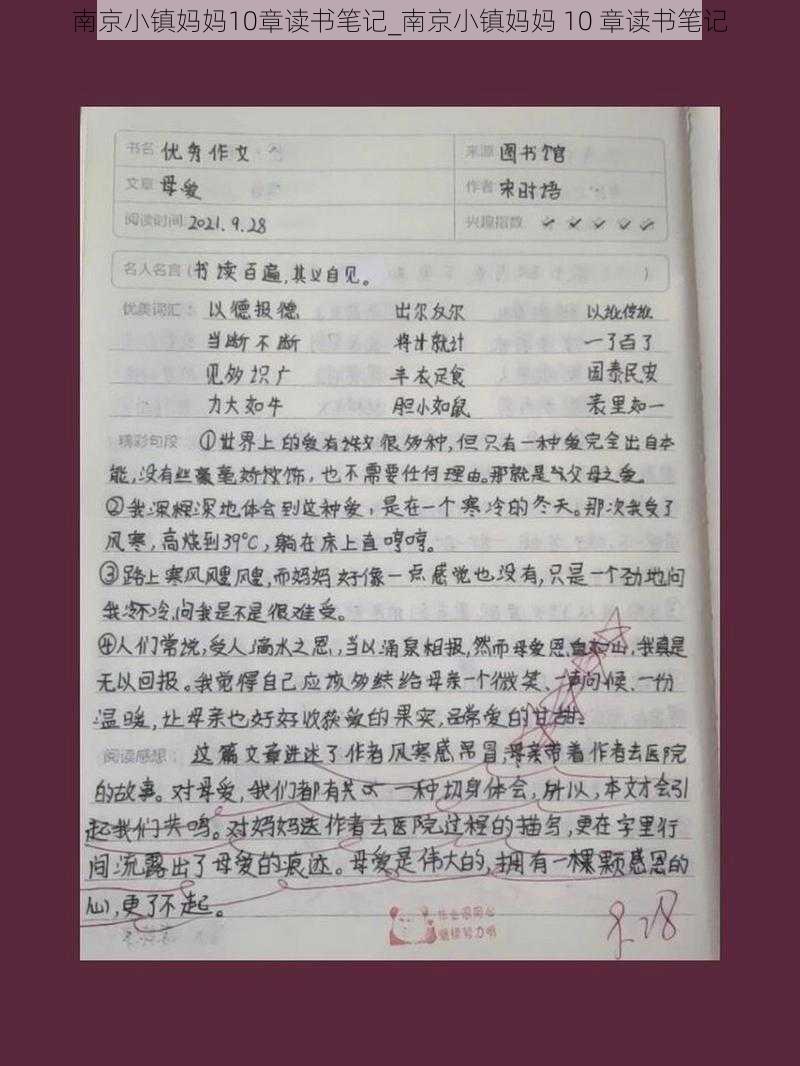 南京小镇妈妈10章读书笔记_南京小镇妈妈 10 章读书笔记
书名 优秀作文 来源 图书馆
文章 母爱 作者 宋时语
阅读时间 2021.9.28 兴趣指数 ✓ ✓ ✓ ✓ ✓
名人名言(书读百遍,其义自见。)
优美词汇: 以德报德 出尔反尔 以讹传讹
当断不断 将计就计 一了百了
见多识广 丰衣足食 国泰民安
力大如牛 胆小如鼠 表里如一
精彩句段 ①世界上的爱有很多种,但只有一种爱完全出自本
能,没有丝毫矫饰,也不需要任何理由。那就是父母之爱。
②我深深地体会到这种爱,是在一个寒冷的冬天。那次我受了
风寒,高烧到39℃,躺在床上直哼哼。
③路上寒风飕飕,而妈妈好像一点感觉也没有,只是一个劲地问
我冷不冷,问我是不是很难受。
④人们常说,受人滴水之恩,当以涌泉相报,然而母爱恩重如山,我真是
无以回报。我觉得自己应该多给母亲一个微笑、一声问候、一份
温暖,让母亲也好好收获爱的果实,品尝爱的甘甜。
阅读感想: 这篇文章讲述了作者风寒感冒,母亲带着作者去医院
的故事。对母爱,我们都有共 一种切身体会,所以,本文才会引
起我们共鸣。对妈妈送作者去医院过程的描写,更在字里行
间流露出了母爱的痕迹。母爱是伟大的,拥有一棵颗感恩的
心,更了不起。
作业很用心
继续努力哦
9.28